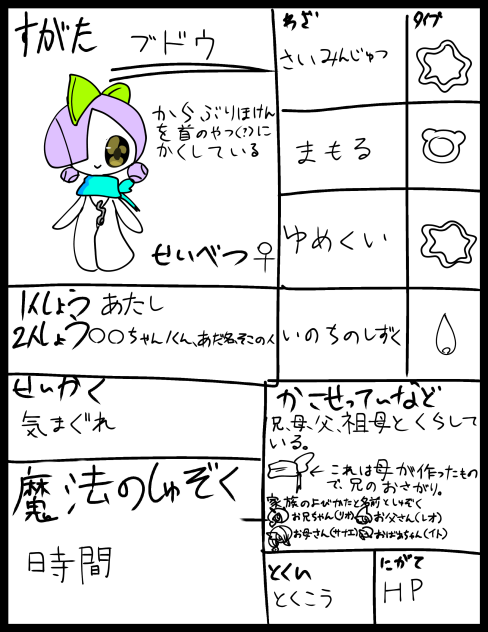 すがた
ブドウ
からぶりほけん
を首のやつ(?)に
かくしている
せいべつ♀
わざ
タイプ
さいみんじゅつ
まもる
ゆめくい
いのちのしずく
1人しょう あたし
2人しょう ○○ちゃん/くん、あだ名、そこの人
せいかく
気まぐれ
魔法のしゅぞく
時間
かこせっていなど
兄、母、父、祖母とくらして
いる。
←これは母が作ったもの
で、兄のおさがり。
家族のよびかたと名前としゅぞく
お兄ちゃん(リオ)
お父さん(レオ)
お母さん(サナエ)
おばあちゃん(イト)
とくい
とくこう
にがて
HP